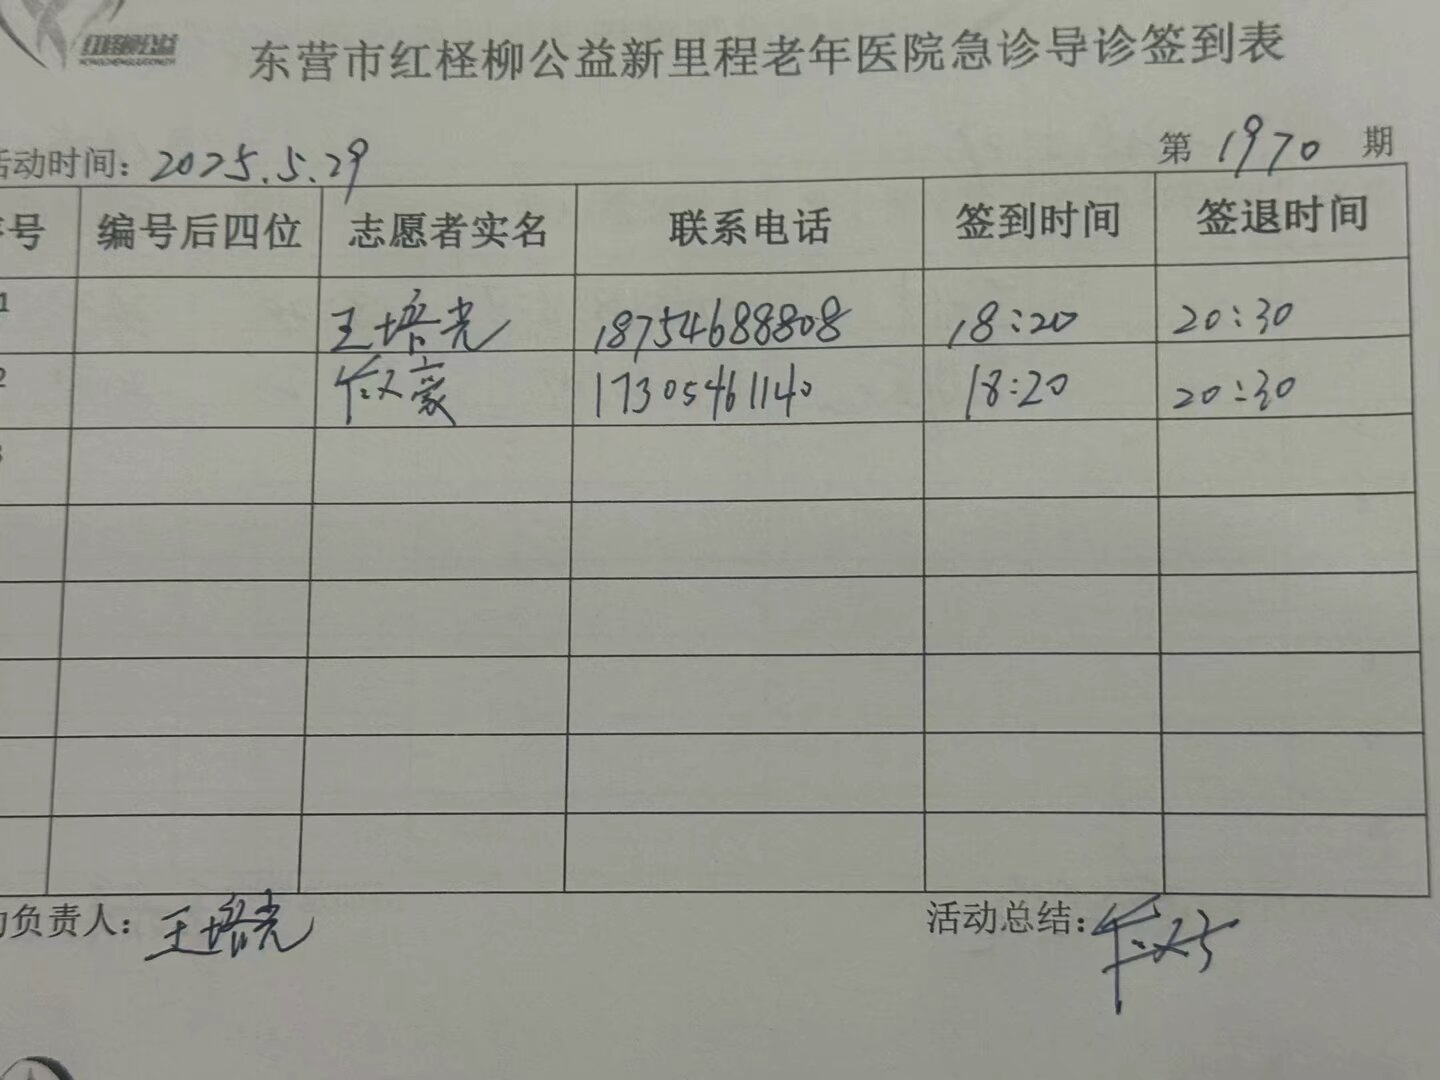 红柽柳公益
东营市红柽柳公益新里程老年医院急诊导诊签到表
活动时间：2025.5.29 第 1970 期
序号 编号后四位 志愿者实名 联系电话 签到时间 签退时间
1 王培光 18754688808 18:20 20:30
2 豪 17305461140 18:20 20:30
3
动负责人：王培光 活动总结：